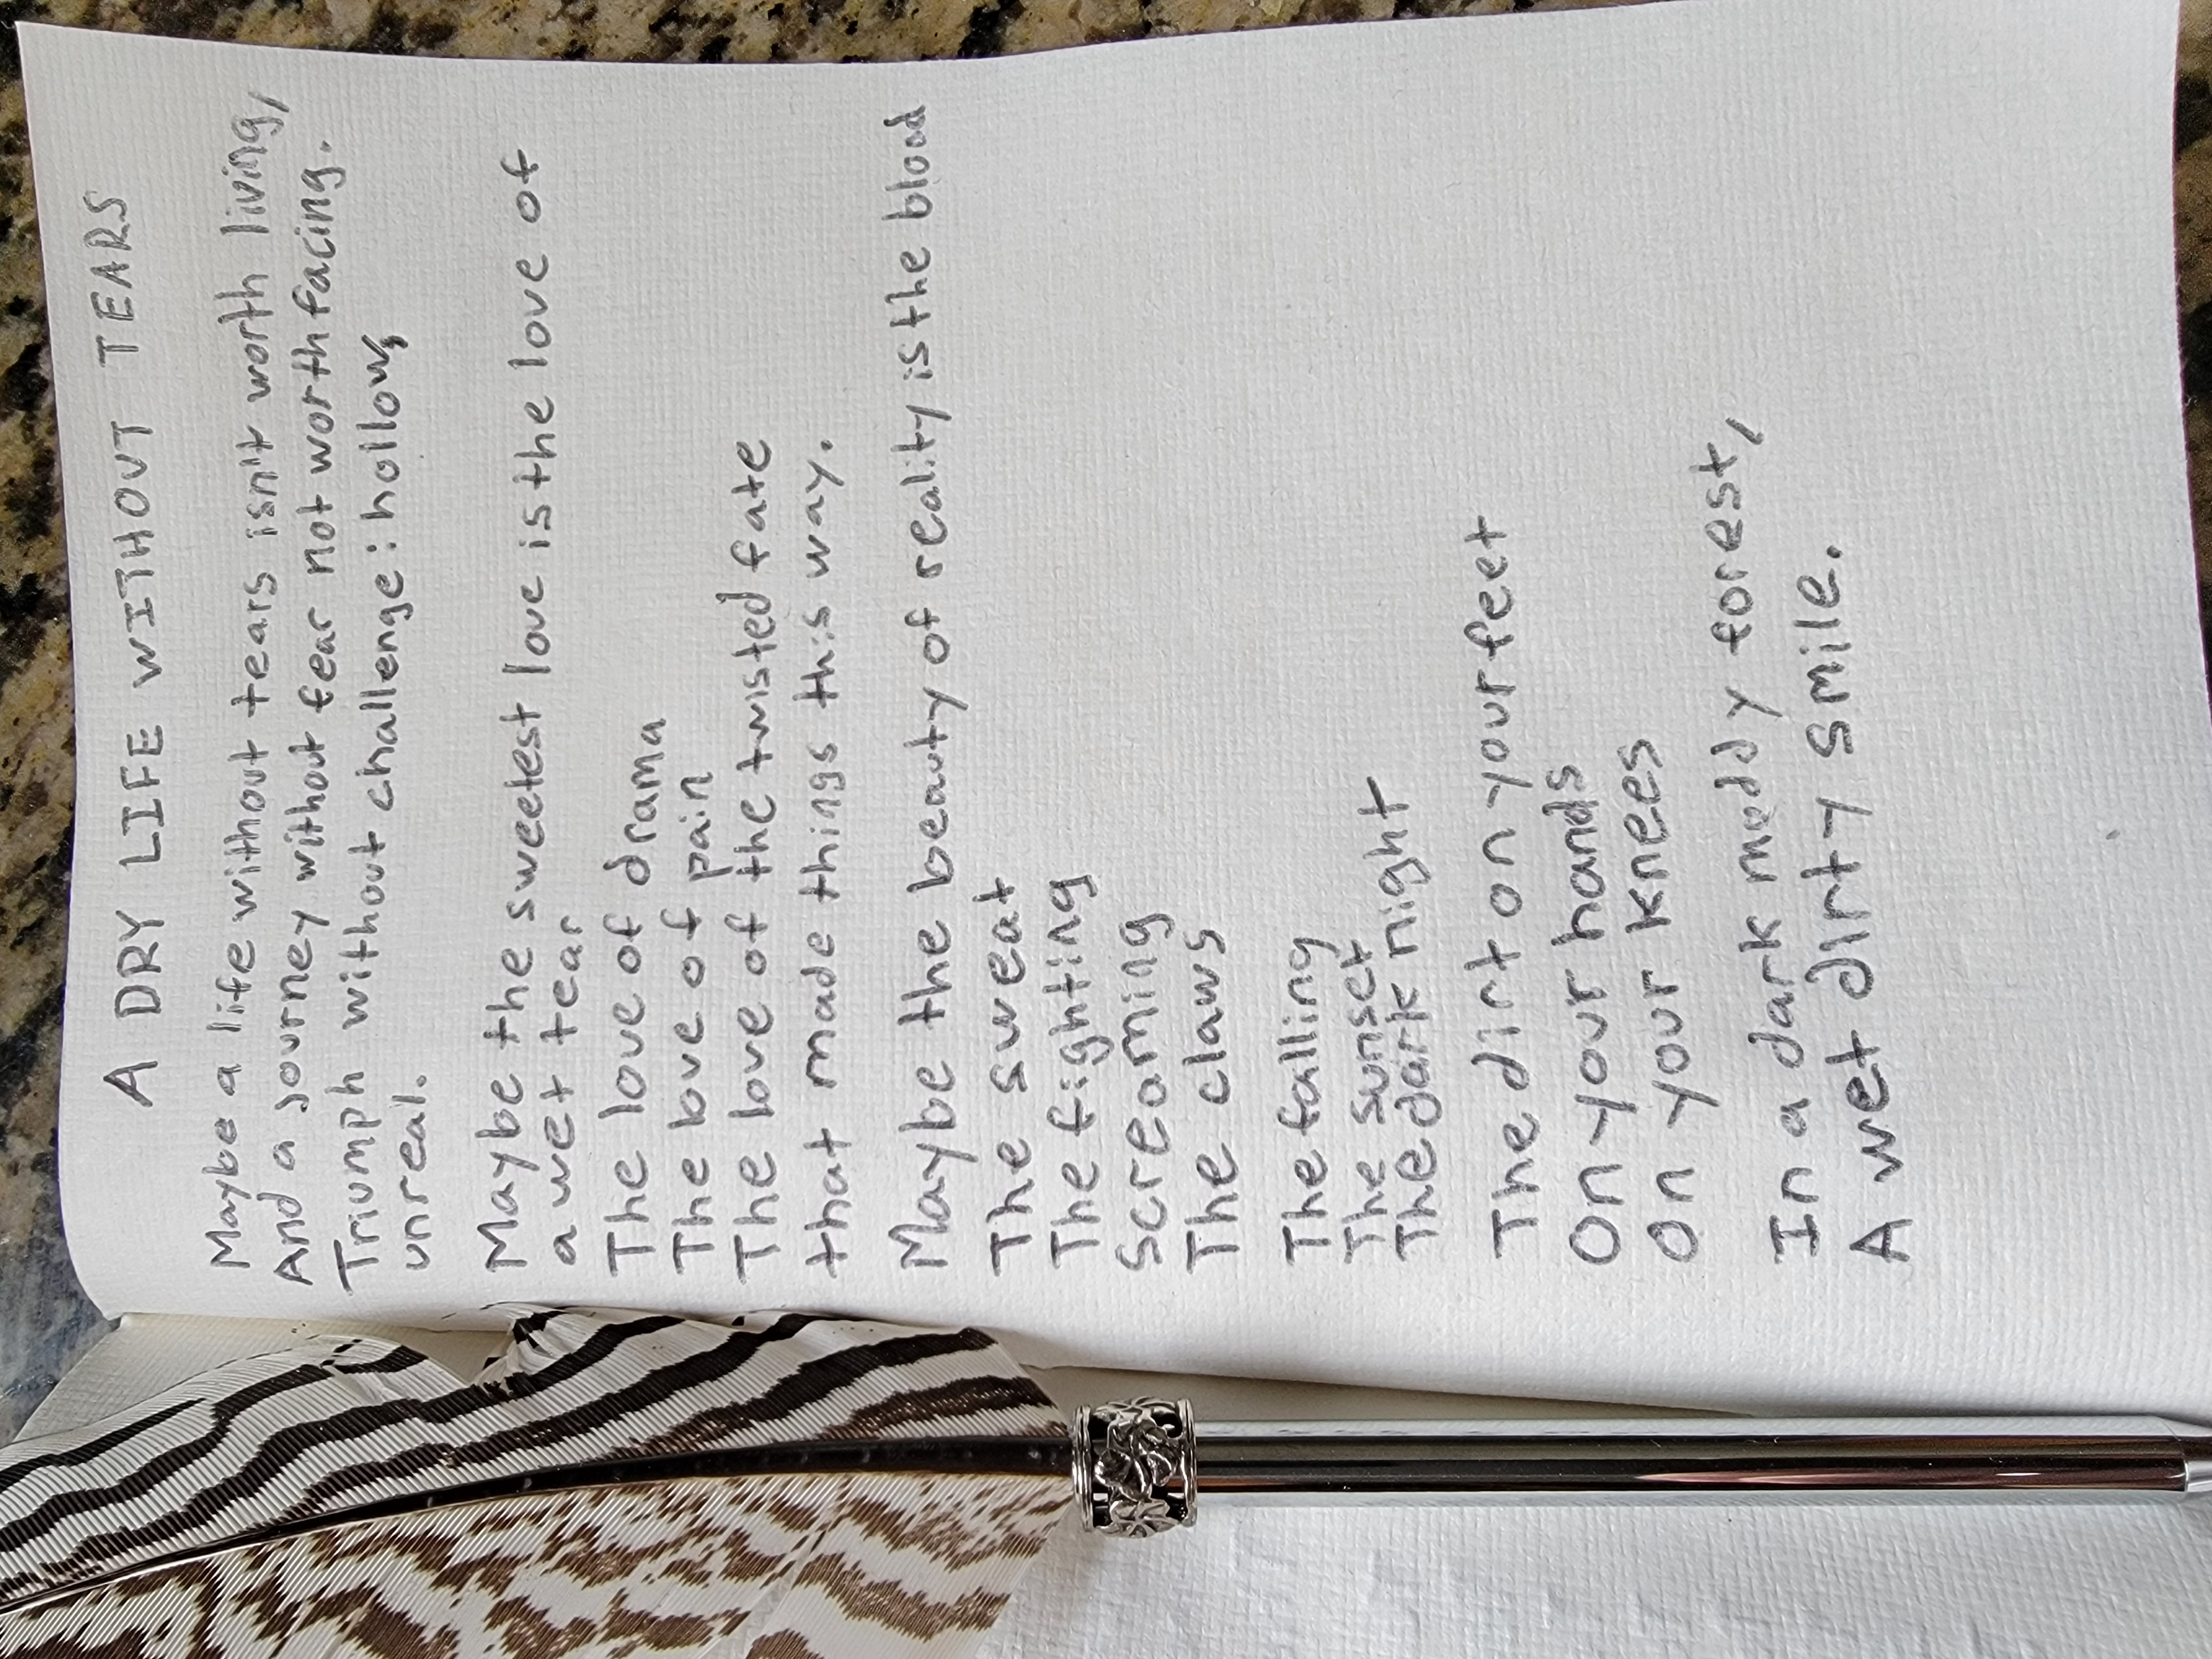 A DRY LIFE WITHOUT TEARS
Maybe a life without tears isn't worth living,
And a journey without fear not worth facing.
Triumph without challenge: hollow,
unreal.
Maybe the sweetest love is the love of
a wet tear
The love of drama
The love of pain
The love of the twisted fate
that made things this way.
Maybe the beauty of reality is the blood
The sweat
The fighting
Screaming
The claws
The falling
The sunset
The dark night
The dirt on your feet
On your hands
On your knees
In a dark muddy forest,
A wet dirty smile.